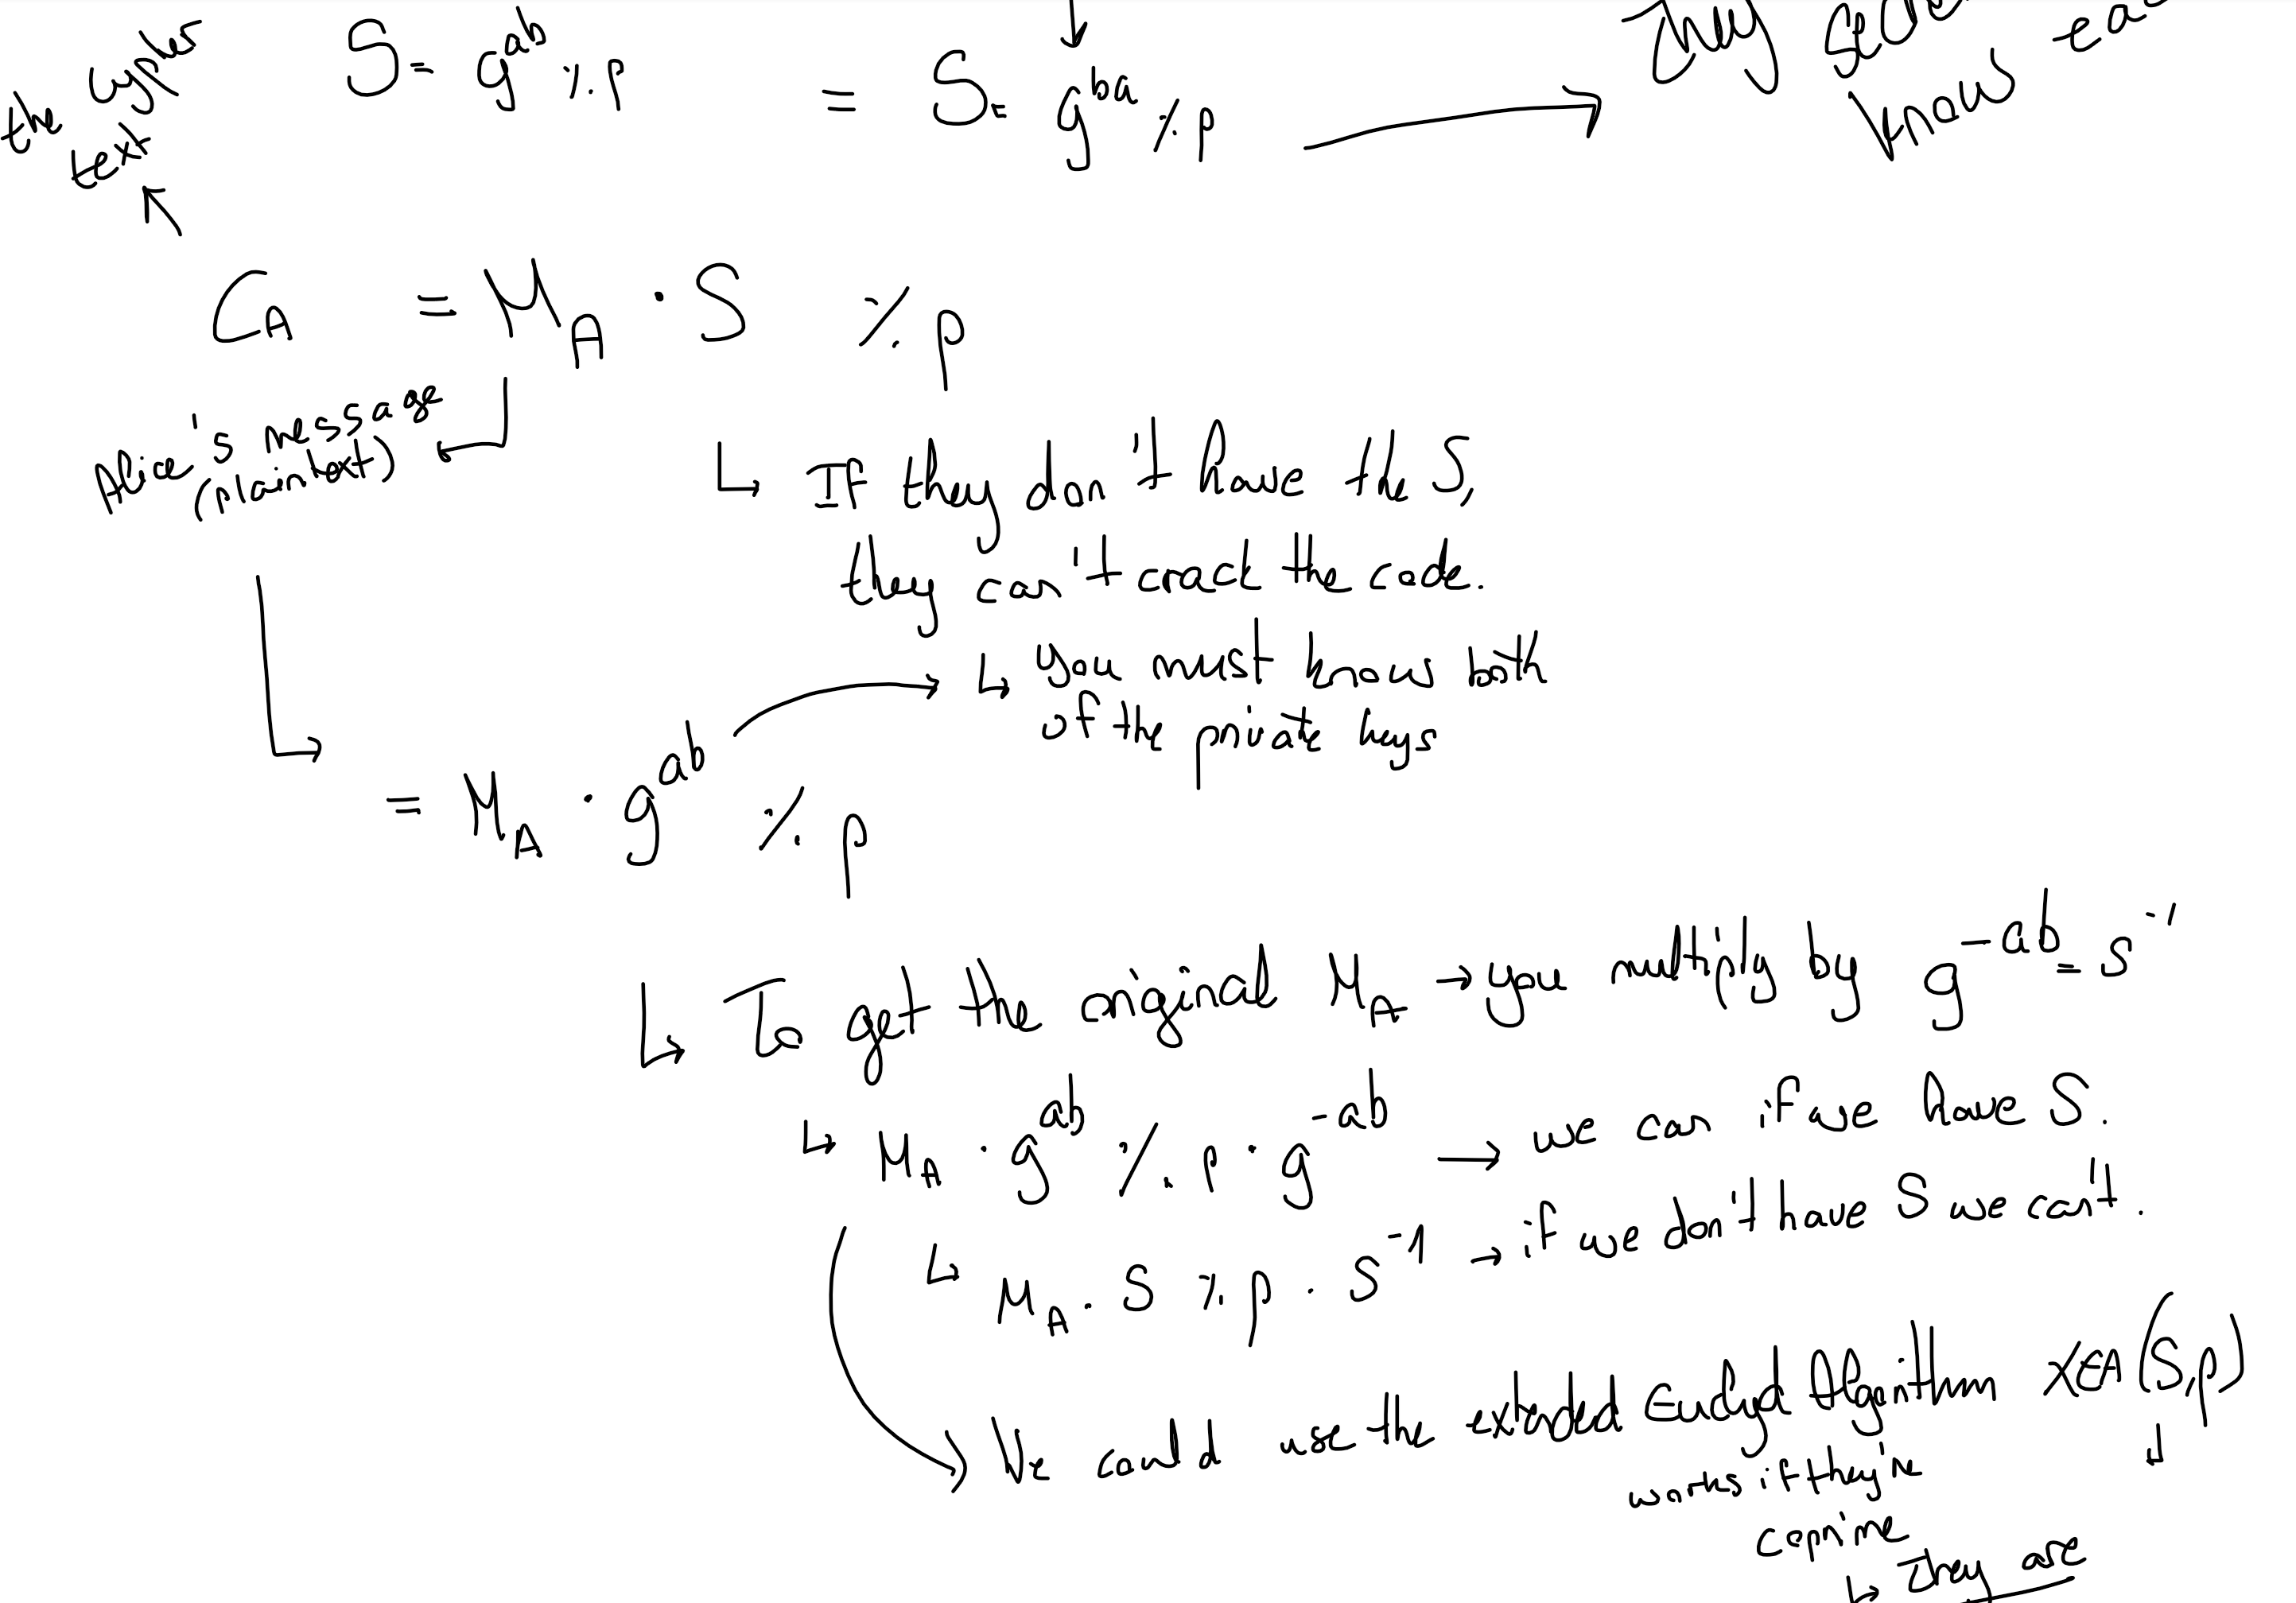 the cypher
text
S= g^ab % p
= S= g^ba % p
They
know
C_A = M_A · S % p
Alice's message
(plaintext)
If they don't have the S,
they can't crack the code.
you must know both
of the private keys
= M_A · g^ab % p
To get the original M_A → you multiply by g^-ab = s^-1
M_A · g^ab % p · g^-ab → we can if we have S.
M_A · S % p · S^-1 → if we don't have S we can't.
We could use the extended Euclid Algorithm XEA(S,p)
works if they're
coprime
They are